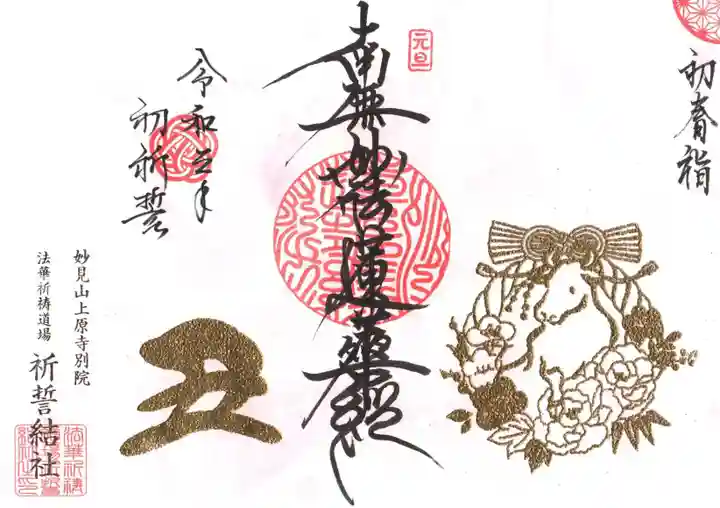 初春詣
元旦
南無妙法蓮華経
令和三年
初祈誓
丑
妙見山上原寺別院
法華祈祷道場
祈誓結社